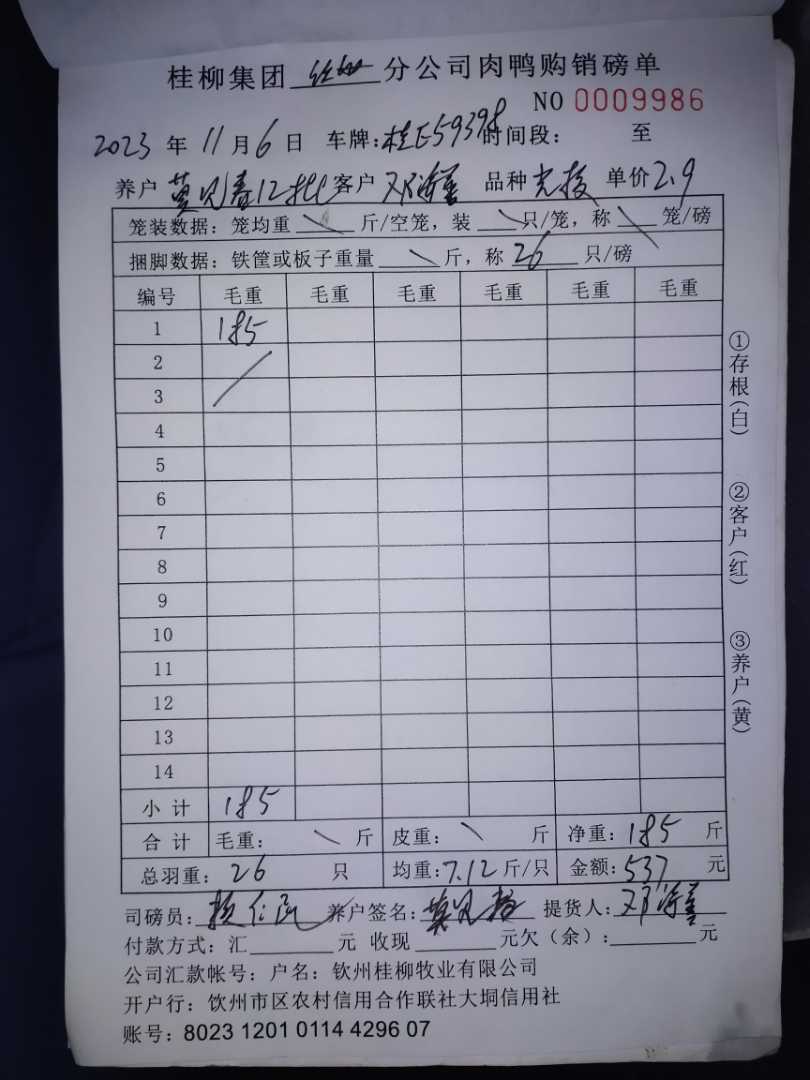 桂柳集团 分公司肉鸭购销磅单
NO 0009986
2023 年 11 月 6 日 车牌:桂E59398 时间段: 至
养户 莫见春12批 客户 邓海 品种 单价 2.9
笼装数据: 笼均重 \ 斤/空笼, 装 \ 只/笼, 称 \ 笼/磅
捆脚数据: 铁筐或板子重量 \ 斤, 称 26 只/磅
编号 毛重 毛重 毛重 毛重 毛重 毛重
1 185
2
3
4
5
6
7
8
9
10
11
12
13
14
小计 185
合计 毛重: \ 斤 皮重: \ 斤 净重: 185 斤
总羽重: 26 只 均重: 7.12 斤/只 金额: 537 元
司磅员: 养户签名: 莫见 提货人: 邓海
付款方式: 汇 元 收现 元欠(余): 元
公司汇款帐号: 户名: 钦州桂柳牧业有限公司
开户行: 饮州市区农村信用合作联社大垌信用社
账号: 8023 1201 0114 4296 07
①存根(白)
②客户(红)
③养户(黄)